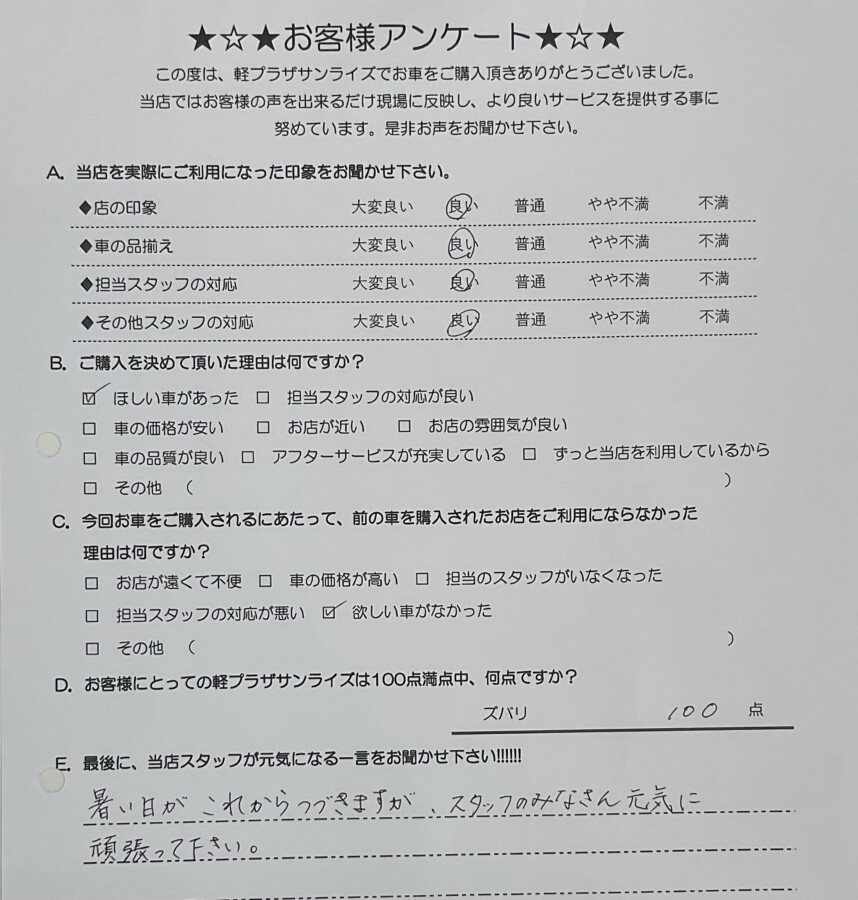 ★☆★お客様アンケート★☆★
この度は、軽プラザサンライズでお車をご購入頂きありがとうございました。
当店ではお客様の声を出来るだけ現場に反映し、より良いサービスを提供する事に
努めています。是非お声をお聞かせ下さい。
A. 当店を実際にご利用になった印象をお聞かせ下さい。
◆店の印象 大変良い 良い 普通 やや不満 不満
◆車の品揃え 大変良い 良い 普通 やや不満 不満
◆担当スタッフの対応 大変良い 良い 普通 やや不満 不満
◆その他スタッフの対応 大変良い 良い 普通 やや不満 不満
B. ご購入を決めて頂いた理由は何ですか？
☑ ほしい車があった □ 担当スタッフの対応が良い
□ 車の価格が安い □ お店が近い □ お店の雰囲気が良い
□ 車の品質が良い □ アフターサービスが充実している □ ずっと当店を利用しているから
□ その他 （ ）
C. 今回お車をご購入されるにあたって、前の車を購入されたお店をご利用にならなかった
理由は何ですか？
□ お店が遠くて不便 □ 車の価格が高い □ 担当のスタッフがいなくなった
□ 担当スタッフの対応が悪い ☑ 欲しい車がなかった
□ その他 （ ）
D. お客様にとっての軽プラザサンライズは100点満点中、何点ですか？
ズバリ 100 点
E. 最後に、当店スタッフが元気になる一言をお聞かせ下さい!!!!!!
暑い日が これからつづきますが、スタッフのみなさん元気に
頑張って下さい。